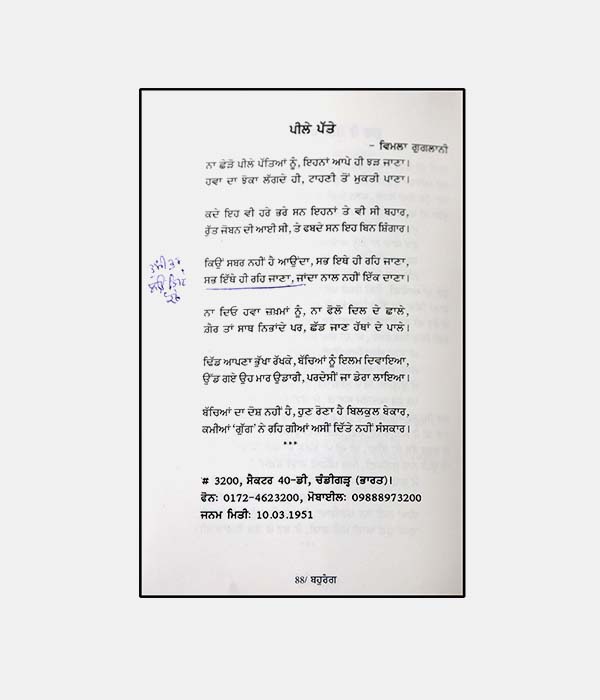 ਪੀਲੇ ਪੱਤੇ
- ਵਿਮਲਾ ਗੁਗਲਾਨੀ
ਨਾ ਛੇੜੋ ਪੀਲੇ ਪੱਤਿਆਂ ਨੂੰ, ਇਹਨਾਂ ਆਪੇ ਹੀ ਝੜ ਜਾਣਾ।
ਹਵਾ ਦਾ ਝੋਕਾ ਲੱਗਦੇ ਹੀ, ਟਾਹਣੀ ਤੋਂ ਮੁਕਤੀ ਪਾਣਾ।
ਕਦੇ ਇਹ ਵੀ ਹਰੇ ਭਰੇ ਸਨ ਇਹਨਾਂ ਤੇ ਵੀ ਸੀ ਬਹਾਰ,
ਰੁੱਤ ਜੋਬਨ ਦੀ ਆਈ ਸੀ, ਤੇ ਫਬਦੇ ਸਨ ਇਹ ਬਿਨ ਸ਼ਿੰਗਾਰ।
ਕਿਉਂ ਸਬਰ ਨਹੀਂ ਹੈ ਆਉਂਦਾ, ਸਭ ਇਥੇ ਹੀ ਰਹਿ ਜਾਣਾ,
ਸਭ ਇੱਥੇ ਹੀ ਰਹਿ ਜਾਣਾ, ਜਾਂਦਾ ਨਾਲ ਨਹੀਂ ਇੱਕ ਦਾਣਾ।
ਨਾ ਦਿਓ ਹਵਾ ਜ਼ਖ਼ਮਾਂ ਨੂੰ, ਨਾ ਫੋਲੋ ਦਿਲ ਦੇ ਛਾਲੇ,
ਗ਼ੈਰ ਤਾਂ ਸਾਥ ਨਿਭਾਂਦੇ ਪਰ, ਛੱਡ ਜਾਣ ਹੱਥਾਂ ਦੇ ਪਾਲੇ।
ਢਿੱਡ ਆਪਣਾ ਭੁੱਖਾ ਰੱਖਕੇ, ਬੱਚਿਆਂ ਨੂੰ ਇਲਮ ਦਿਵਾਇਆ,
ਉੱਡ ਗਏ ਉਹ ਮਾਰ ਉਡਾਰੀ, ਪਰਦੇਸੀਂ ਜਾ ਡੇਰਾ ਲਾਇਆ।
ਬੱਚਿਆਂ ਦਾ ਦੋਸ਼ ਨਹੀਂ ਹੈ, ਹੁਣ ਰੋਣਾ ਹੈ ਬਿਲਕੁਲ ਬੇਕਾਰ,
ਕਮੀਆਂ 'ਗੁੱਗ' ਨੇ ਰਹਿ ਗੀਆਂ ਅਸੀਂ ਦਿੱਤੇ ਨਹੀਂ ਸੰਸਕਾਰ।
***
# 3200, ਸੈਕਟਰ 40-ਡੀ, ਚੰਡੀਗੜ੍ਹ (ਭਾਰਤ)।
ਫੋਨ: 0172-4623200, ਮੋਬਾਈਲ: 09888973200
ਜਨਮ ਮਿਤੀ: 10.03.1951
88/ ਬਹੁਰੰਗ